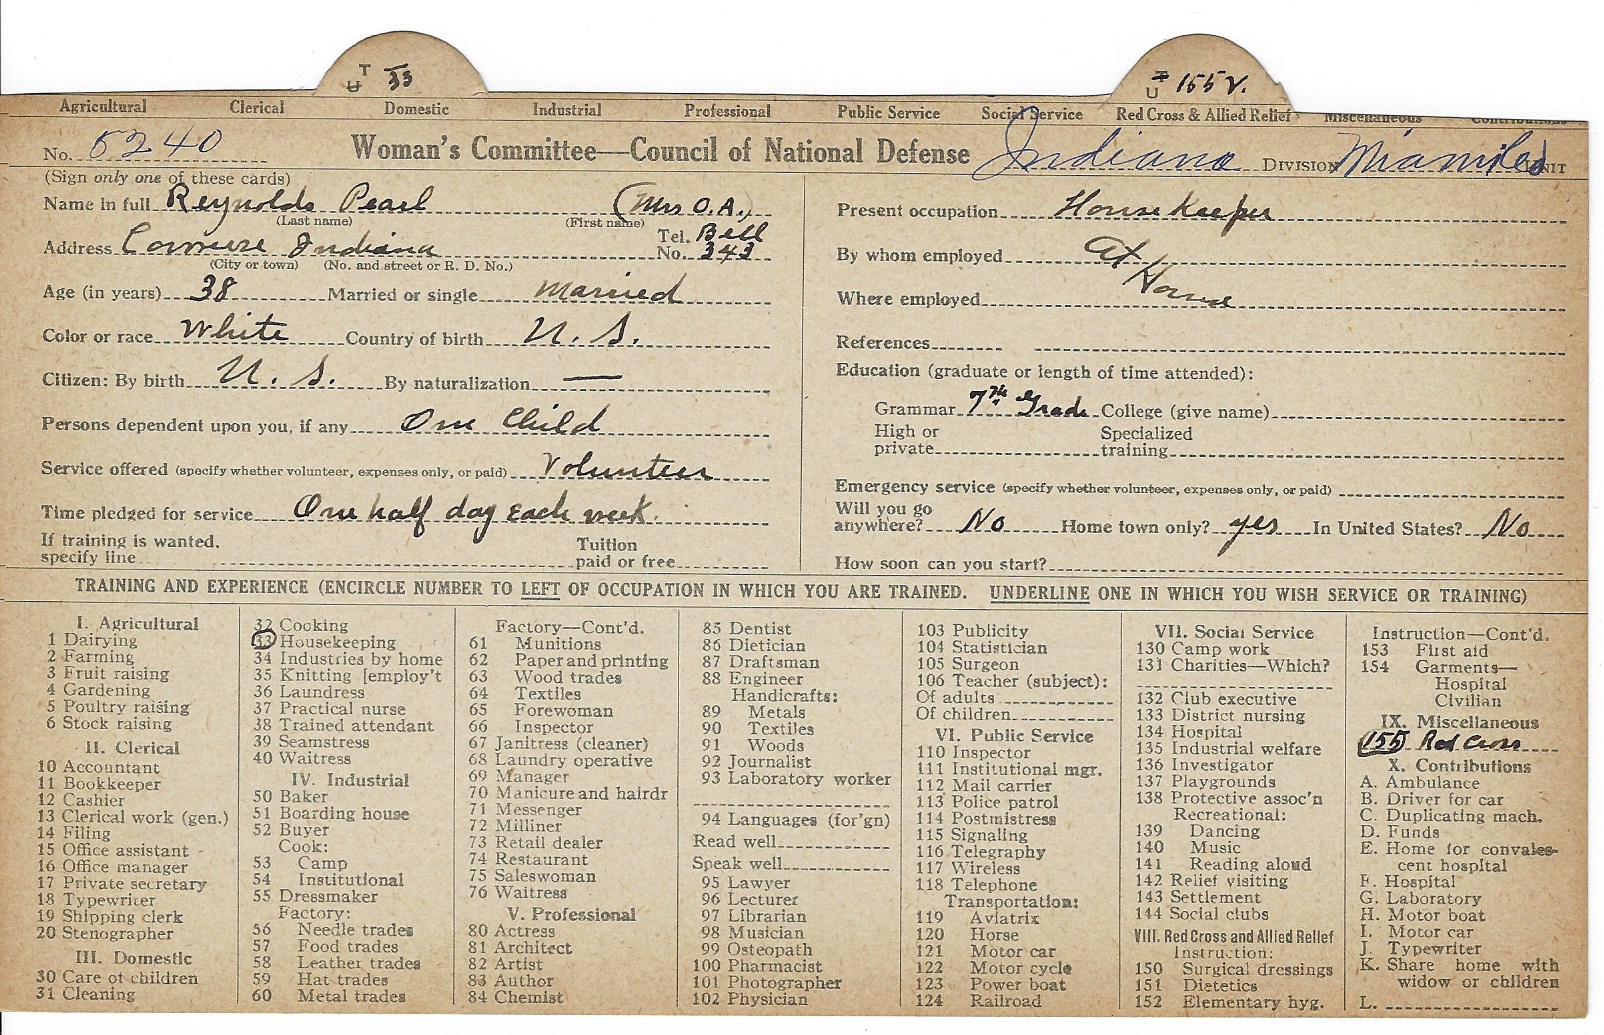 T
U 33
T
U 155 V.
Agricultural Clerical Domestic Industrial Professional Public Service Social Service Red Cross & Allied Relief Miscellaneous Contributions
No. 5240 Woman's Committee—Council of National Defense Indiana DIVISION UNIT
(Sign only one of these cards)
Name in full Reynolds Pearl (Mrs O.A.)
(Last name) (First name)
Address Indiana Tel. No. Bell 343
(City or town) (No. and street or R. D. No.)
Age (in years) 38 Married or single Married
Color or race White Country of birth U. S.
Citizen: By birth U. S. By naturalization —
Persons dependent upon you, if any One Child
Service offered (specify whether volunteer, expenses only, or paid) Volunteer
Time pledged for service One half day each week.
If training is wanted, specify line Tuition paid or free
Present occupation House Keeper
By whom employed At
Where employed Home
References
Education (graduate or length of time attended):
Grammar 7th Grade College (give name)
High or private Specialized training
Emergency service (specify whether volunteer, expenses only, or paid)
Will you go anywhere? No Home town only? yes In United States? No
How soon can you start?
TRAINING AND EXPERIENCE (ENCIRCLE NUMBER TO LEFT OF OCCUPATION IN WHICH YOU ARE TRAINED. UNDERLINE ONE IN WHICH YOU WISH SERVICE OR TRAINING)
I. Agricultural
1 Dairying
2 Farming
3 Fruit raising
4 Gardening
5 Poultry raising
6 Stock raising
II. Clerical
10 Accountant
11 Bookkeeper
12 Cashier
13 Clerical work (gen.)
14 Filing
15 Office assistant
16 Office manager
17 Private secretary
18 Typewriter
19 Shipping clerk
20 Stenographer
III. Domestic
30 Care of children
31 Cleaning
32 Cooking
33 Housekeeping
34 Industries by home
35 Knitting [employ't
36 Laundress
37 Practical nurse
38 Trained attendant
39 Seamstress
40 Waitress
IV. Industrial
50 Baker
51 Boarding house
52 Buyer
Cook:
53 Camp
54 Institutional
55 Dressmaker
Factory:
56 Needle trades
57 Food trades
58 Leather trades
59 Hat trades
60 Metal trades
Factory—Cont'd.
61 Munitions
62 Paper and printing
63 Wood trades
64 Textiles
65 Forewoman
66 Inspector
67 Janitress (cleaner)
68 Laundry operative
69 Manager
70 Manicure and hairdr
71 Messenger
72 Milliner
73 Retail dealer
74 Restaurant
75 Saleswoman
76 Waitress
V. Professional
80 Actress
81 Architect
82 Artist
83 Author
84 Chemist
85 Dentist
86 Dietician
87 Draftsman
88 Engineer
Handicrafts:
89 Metals
90 Textiles
91 Woods
92 Journalist
93 Laboratory worker
94 Languages (for'gn)
Read well
Speak well
95 Lawyer
96 Lecturer
97 Librarian
98 Musician
99 Osteopath
100 Pharmacist
101 Photographer
102 Physician
103 Publicity
104 Statistician
105 Surgeon
106 Teacher (subject):
Of adults
Of children
VI. Public Service
110 Inspector
111 Institutional mgr.
112 Mail carrier
113 Police patrol
114 Postmistress
115 Signaling
116 Telegraphy
117 Wireless
118 Telephone
Transportation:
119 Aviatrix
120 Horse
121 Motor car
122 Motor cycle
123 Power boat
124 Railroad
VII. Social Service
130 Camp work
131 Charities—Which?
132 Club executive
133 District nursing
134 Hospital
135 Industrial welfare
136 Investigator
137 Playgrounds
138 Protective assoc'n
Recreational:
139 Dancing
140 Music
141 Reading aloud
142 Relief visiting
143 Settlement
144 Social clubs
VIII. Red Cross and Allied Relief
Instruction:
150 Surgical dressings
151 Dietetics
152 Elementary hyg.
Instruction—Cont'd.
153 First aid
154 Garments—
Hospital
Civilian
IX. Miscellaneous
155 Red Cross
X. Contributions
A. Ambulance
B. Driver for car
C. Duplicating mach.
D. Funds
E. Home for convales-
cent hospital
F. Hospital
G. Laboratory
H. Motor boat
I. Motor car
J. Typewriter
K. Share home with
widow or children
L.